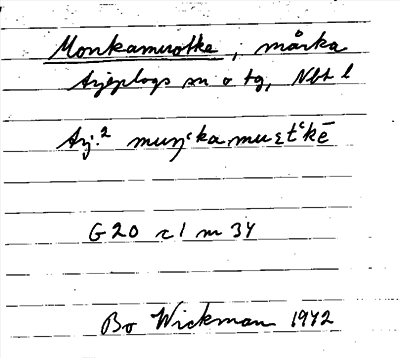 Monkamuotka, mårka
Arjeplogs sn o tg, Nbt l
Arj.² muŋ‘ka muɛt‘kē
G20 c1 m 34
Bo Wickman 1942